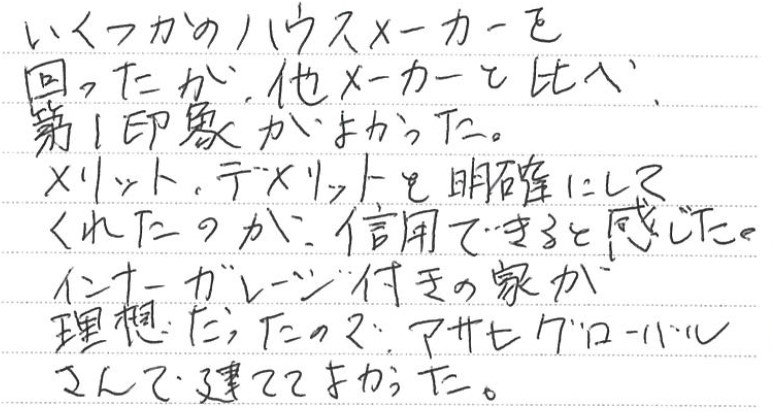 いくつかのハウスメーカーを
回ったが、他メーカーと比べ、
第1印象がよかった。
メリット、デメリットを明確にして
くれたのが、信用できると感じた。
インナーガレージ付きの家が
理想だったので、アサヒグローバル
さんで建ててよかった。